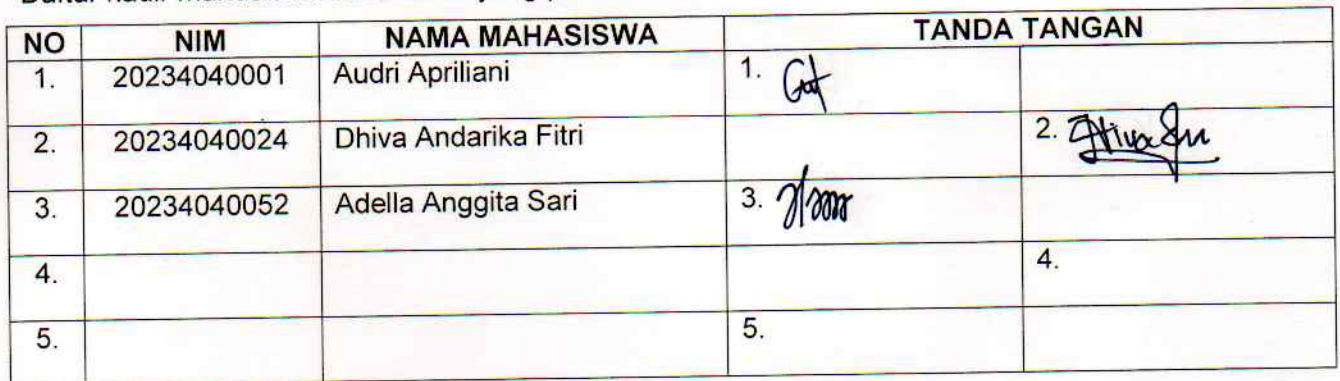 NO NIM NAMA MAHASISWA TANDA TANGAN
1. 20234040001 Audri Apriliani 1.
2. 20234040024 Dhiva Andarika Fitri 2.
3. 20234040052 Adella Anggita Sari 3.
4. 4.
5. 5.